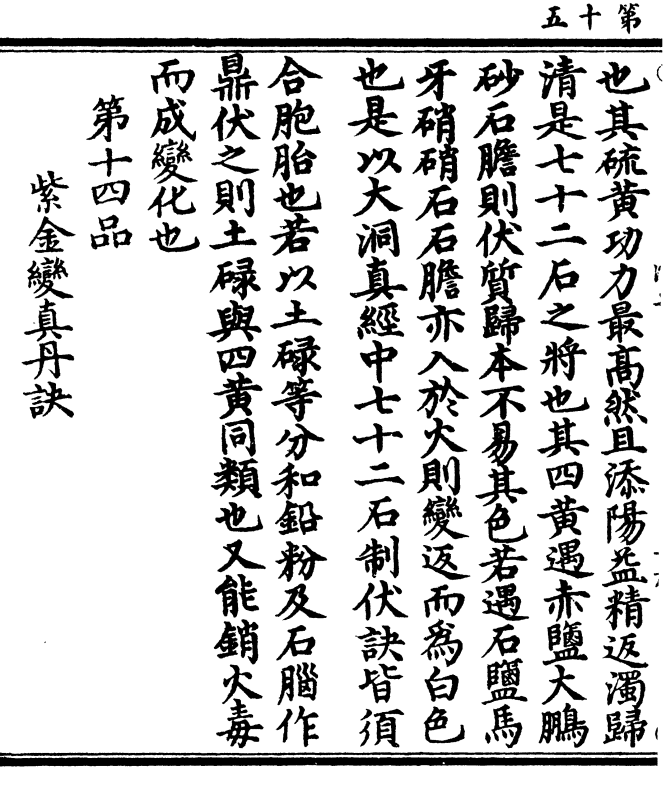 第十五
也其硫黄功力最高然且添陽益精返濁歸
清是七十二石之將也其四黄遇赤鹽大鵬
砂石膽則伏質歸本不易其色若遇石鹽馬
牙硝硝石石膽亦入於火則變返而為白色
也是以大洞真經中七十二石制伏訣皆須
合胞胎也若以土碌等分和鉛粉及石腦作
鼎伏之則土碌與四黄同類也又能銷火毒
而成變化也
第十四品
紫金變真丹訣